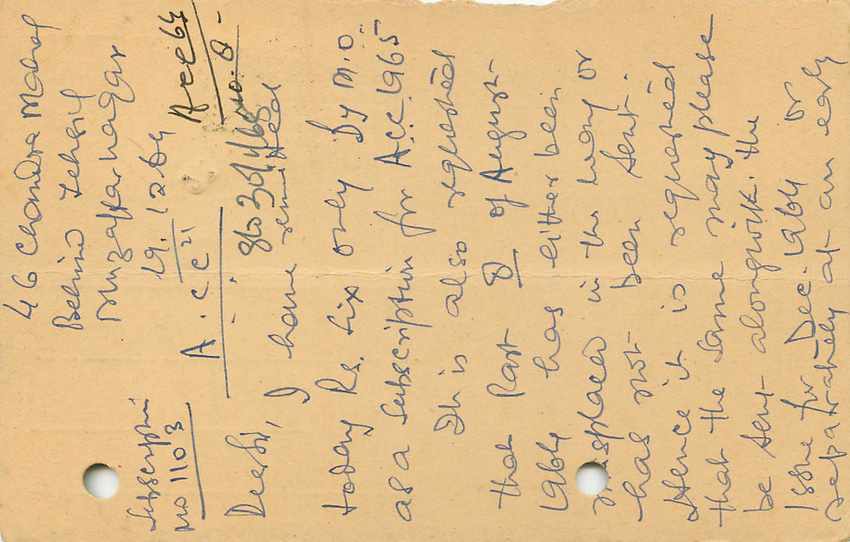 46 Chandra Mahal
Behind Tehsil
Muzaffarnagar
19.12.64
Acc 64
no. 8
Subscription
no 1103
A.C.C
Dear Sir, I have remitted
today Rs. Six only by M.O.
as a subscription for A.C.C. 1965
It is also requested
that Part 8 of August
1964 has either been
misplaced in the way or
has not been sent.
Hence it is requested
that the same may please
be sent alongwith the
Issue for Dec. 1964 or
separately at an early